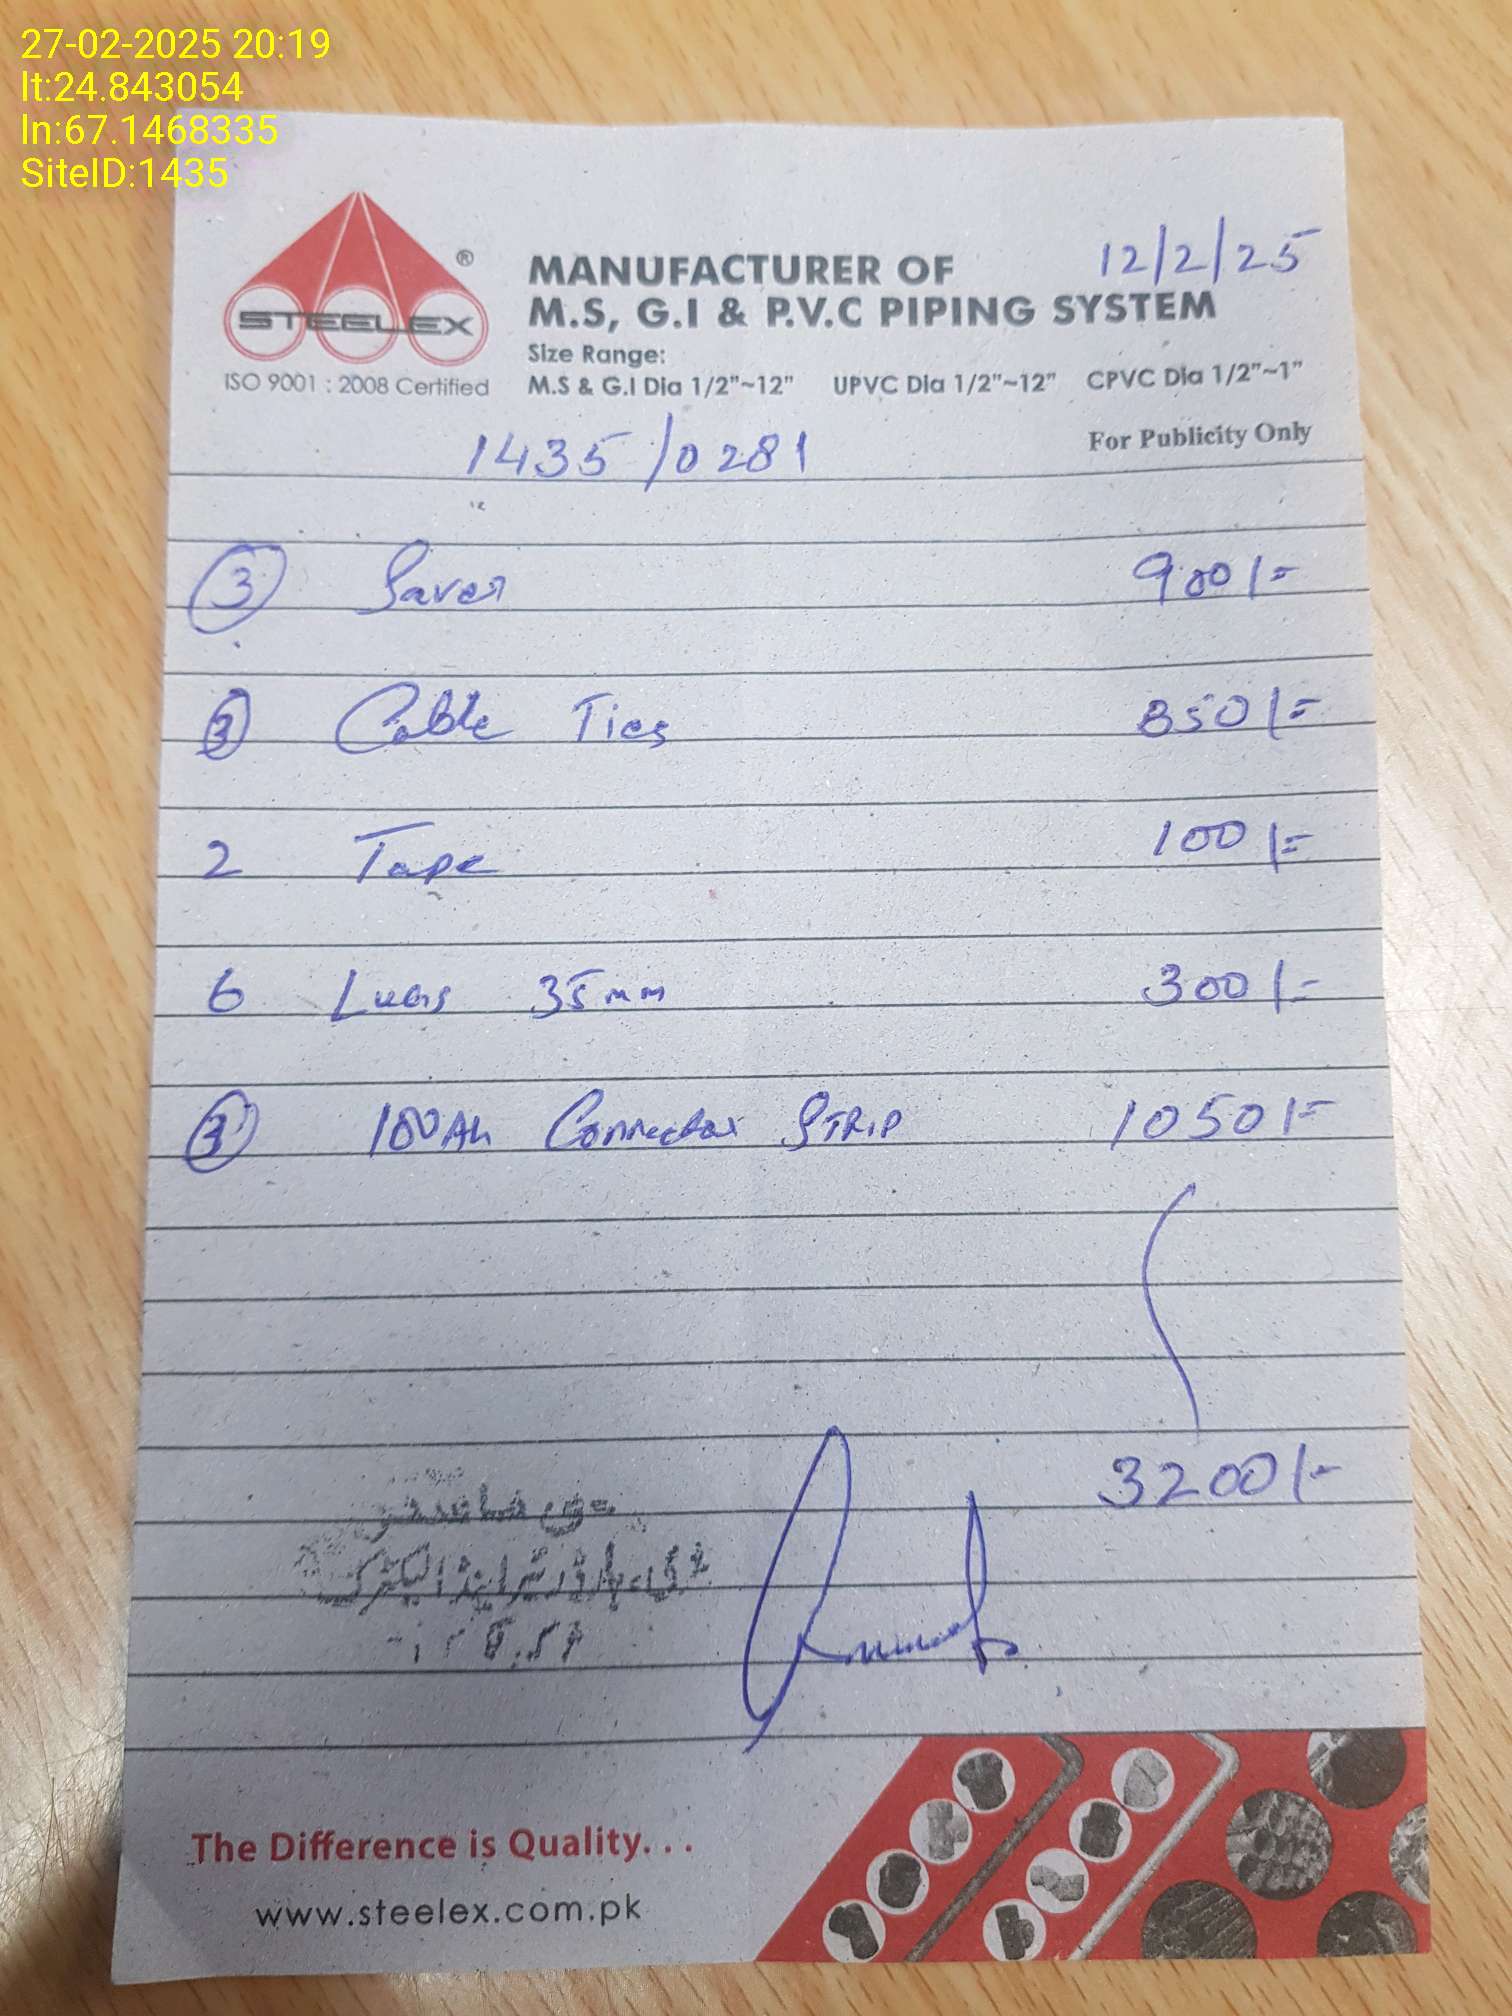 27-02-2025 20:19
lt:24.843054
ln:67.1468335
SiteID:1435
®
STEELEX
ISO 9001 : 2008 Certified
12/2/25
MANUFACTURER OF
M.S, G.I & P.V.C PIPING SYSTEM
Size Range:
M.S & G.I Dia 1/2"~12" UPVC Dia 1/2"~12" CPVC Dia 1/2"~1"
For Publicity Only
1435/0281
3 Saver 900/=
3 Cable Ties 850/=
2 Tape 100/=
6 Lugs 35mm 300/=
3 100Ah Connector STRIP 1050/=
3200/-
The Difference is Quality. . .
www.steelex.com.pk